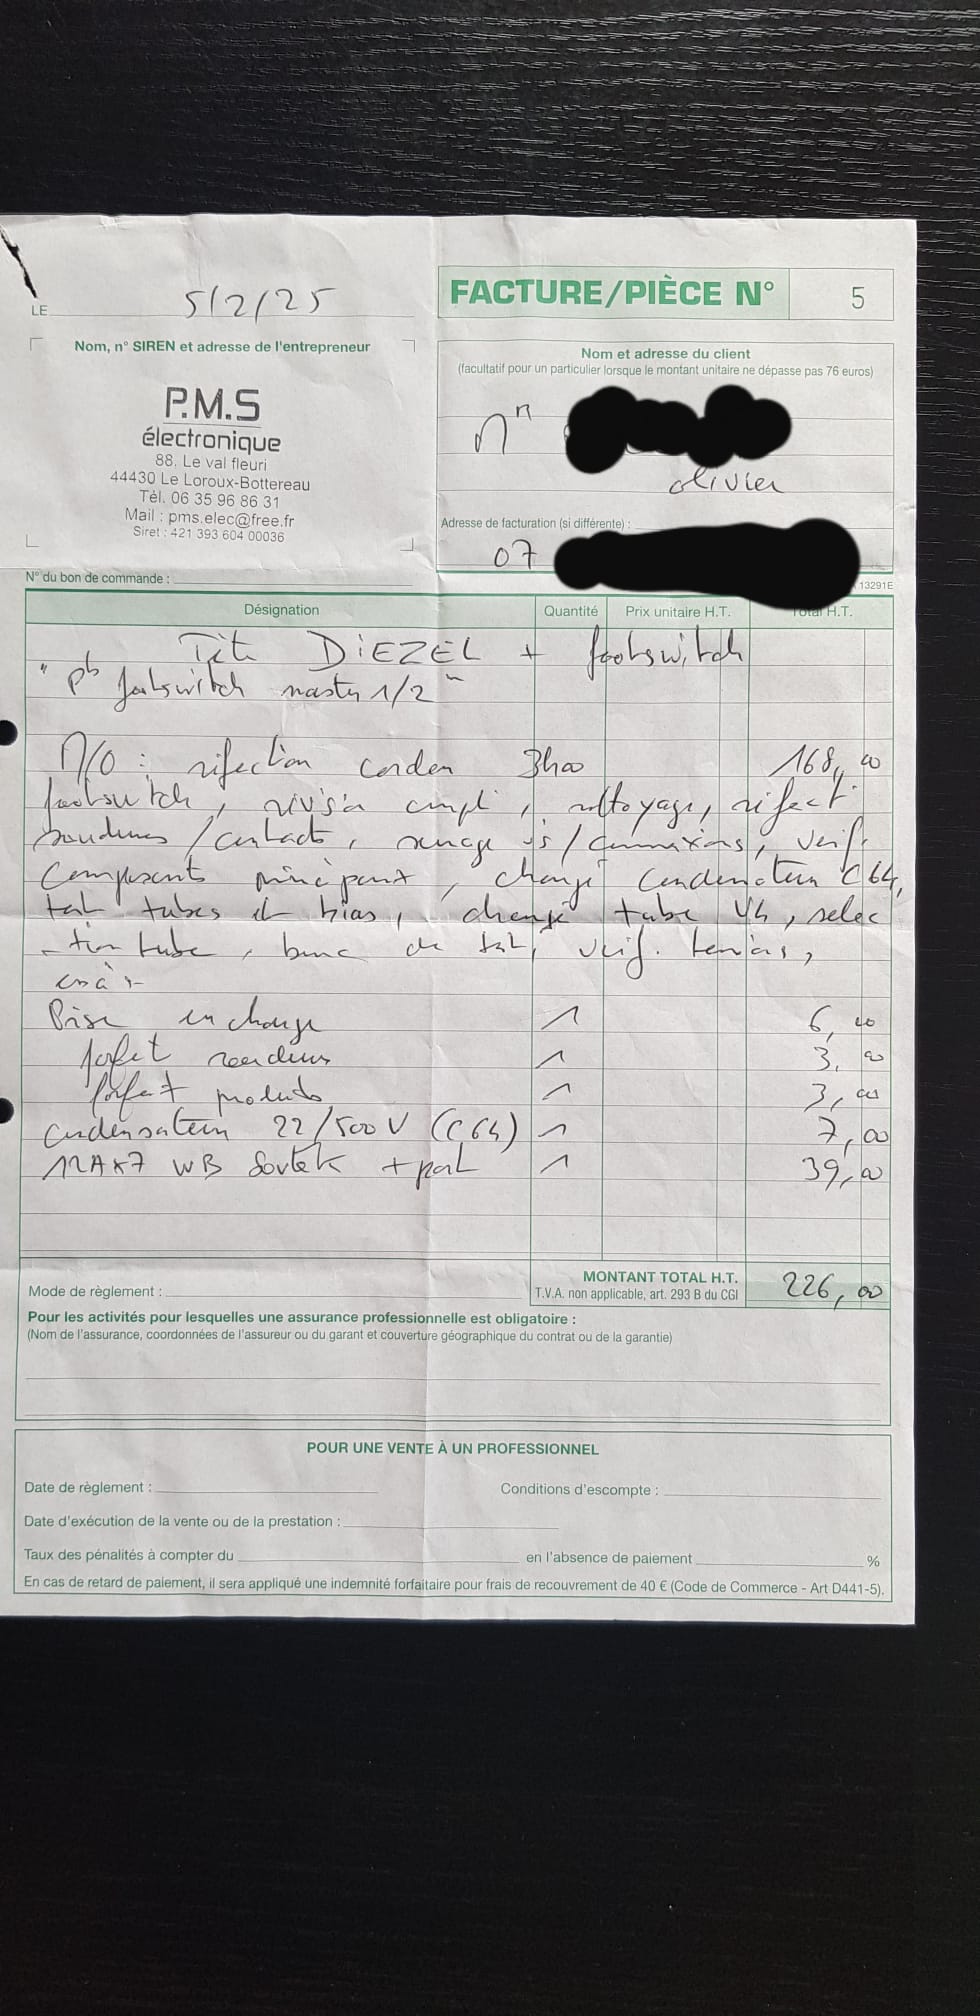 LE 5/2/25
FACTURE/PIÈCE N° 5
Nom, n° SIREN et adresse de l'entrepreneur
P.M.S
électronique
88, Le val fleuri
44430 Le Loroux-Bottereau
Tél. 06 35 96 86 31
Mail : pms.elec@free.fr
Siret : 421 393 604 00036
Nom et adresse du client
(facultatif pour un particulier lorsque le montant unitaire ne dépasse pas 76 euros)
Mr
olivier
Adresse de facturation (si différente) :
07
N° du bon de commande :
13291E
Désignation Quantité Prix unitaire H.T. Total H.T.
DIEZEL + footswitch
" pb footswitch master 1/2 "
M/O : réfection cordon 3h00 168,00
footswitch, révision ampli, nettoyage, réfect°
soudures / contacts, / connexions, verif.
composants principaux, changé condensateur C64,
test tubes et bias, changé tube V4, sélec
-tion tube, banc de test, verif. tensions,
essais
Prise en charge 1 6,00
forfait 1 3,00
forfait produits 1 3,00
condensateur 22/500V (C64) 1 7,00
12AX7 WB Sovtek + port 1 39,00
MONTANT TOTAL H.T. 226,00
T.V.A. non applicable, art. 293 B du CGI
Mode de règlement :
Pour les activités pour lesquelles une assurance professionnelle est obligatoire :
(Nom de l'assurance, coordonnées de l'assureur ou du garant et couverture géographique du contrat ou de la garantie)
POUR UNE VENTE À UN PROFESSIONNEL
Date de règlement : Conditions d'escompte :
Date d'exécution de la vente ou de la prestation :
Taux des pénalités à compter du en l'absence de paiement %
En cas de retard de paiement, il sera appliqué une indemnité forfaitaire pour frais de recouvrement de 40 € (Code de Commerce - Art D441-5).